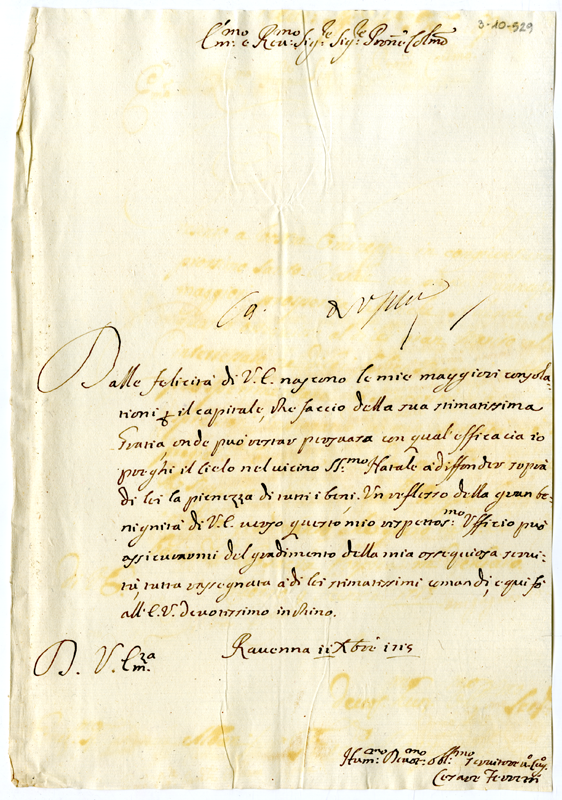 3-10-529
Em.mo e Rev.mo Sig.re Sig.re Pron.e Col.mo
Dalle felicità di V. E. nascono le mie maggiori consola-
tioni p il capitale, che faccio della sua stimatissima
Gratia, onde può restar persuasa con qual'efficacia io
preghi il Cielo nel vicino SS.mo Natale à diffonder sopra
di lei la pienezza di tutti i beni. Un reflesso della gran be-
nignità di V. E. verso questo mio rispettos.mo Ufficio può
assicurarmi del gradimento della mia ossequiosa servi-
tù, tutta rassegnata à di lei stimatissimi comandi, e qui fò
all'E. V. devotissimo inchino.
Ravenna 11 Xbre 1715
D. V. Em.za
Hum.mo Devot.mo Obl.mo Servitore
Cesare